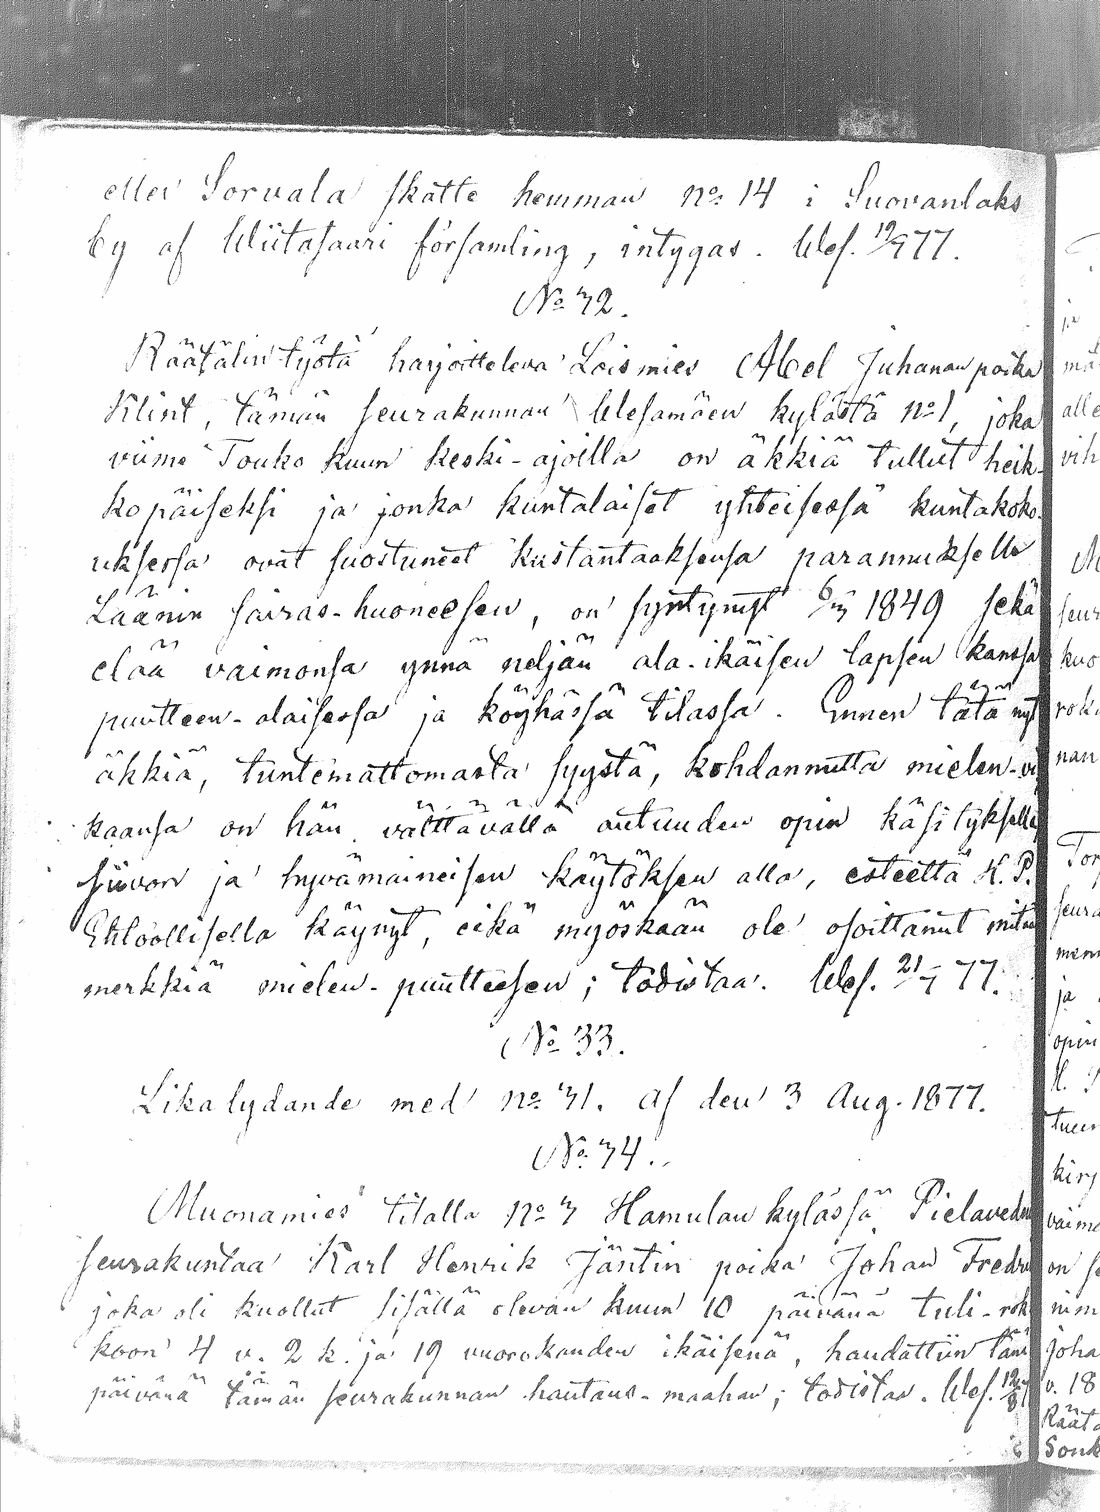 eller Sorvala skatte hemman No 14 i Suovanlaks
by af Wiitasaari församling, intygas. Wes. 19/7 77.
No 32.
Räätälin työtä harjoitteleva Loismies Abel Juhananpoika
Klint, tämän seurakunnan Wesamäen kylästä No 1, joka
viime Touko kuun keski-ajoilla on äkkiä tullut heik-
kopäiseksi ja jonka kuntalaiset yhteisessä kuntakoko-
uksessa ovat suostuneet kustantaaksensa parannukselle
Läänin sairas-huoneesen, on syntynyt 6/3 1849 sekä
elää vaimonsa ynnä neljän ala-ikäisen lapsen kanssa
puutteen-alaisessa ja köyhässä tilassa. Ennen tätä nyt
äkkiä, tuntemattomasta syystä, kohdannutta mielen-vi
kaansa on hän välttävällä autuuden opin käsityksellä
siivon ja hyvämaineisen käytöksen alla, esteettä H. P.
Ehtoollisella käynyt, eikä myöskään ole osoittanut mitään
merkkiä mielen-puutteesen; todistaa. Wes. 21/7 77.
No 33.
Lika lydande med No 31. af den 3 Aug. 1877.
No 34.
Muonamies tilalla No 3 Hamulan kylässä Pielaveden
seurakuntaa Karl Henrik Jäntin poika Johan Fredr
joka oli kuollut sisällä olevan kuun 10 päivänä tuli-rok
koon 4 v. 2 k. ja 19 vuorokauden ikäisenä, haudattiin tänä
päivänä tämän seurakunnan hautaus-maahan; todistaa. Wes. 12/8